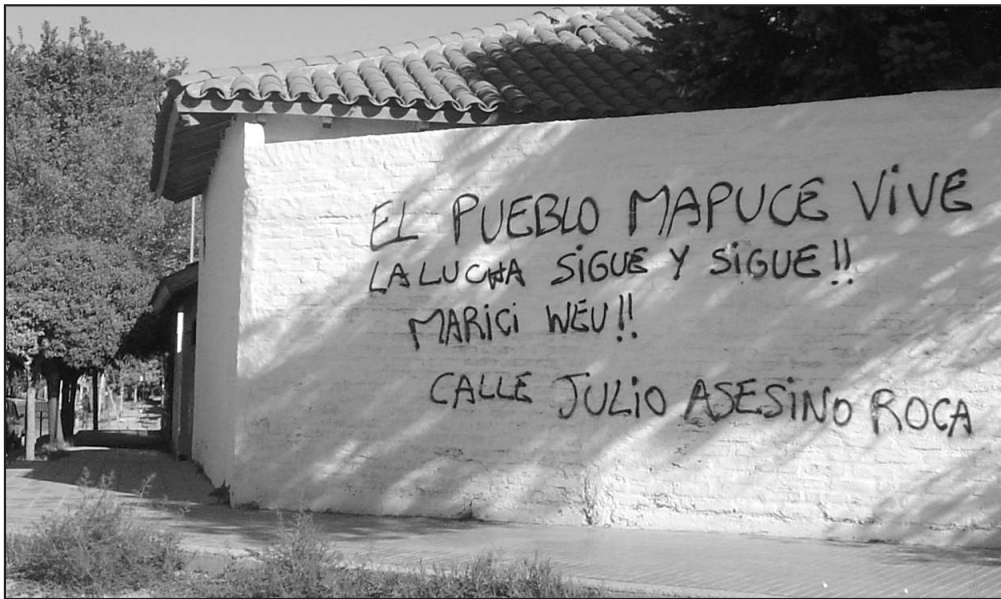 EL PUEBLO MAPUCE VIVE
LA LUCHA SIGUE Y SIGUE!!
MARICI WEU!!
CALLE JULIO ASESINO ROCA